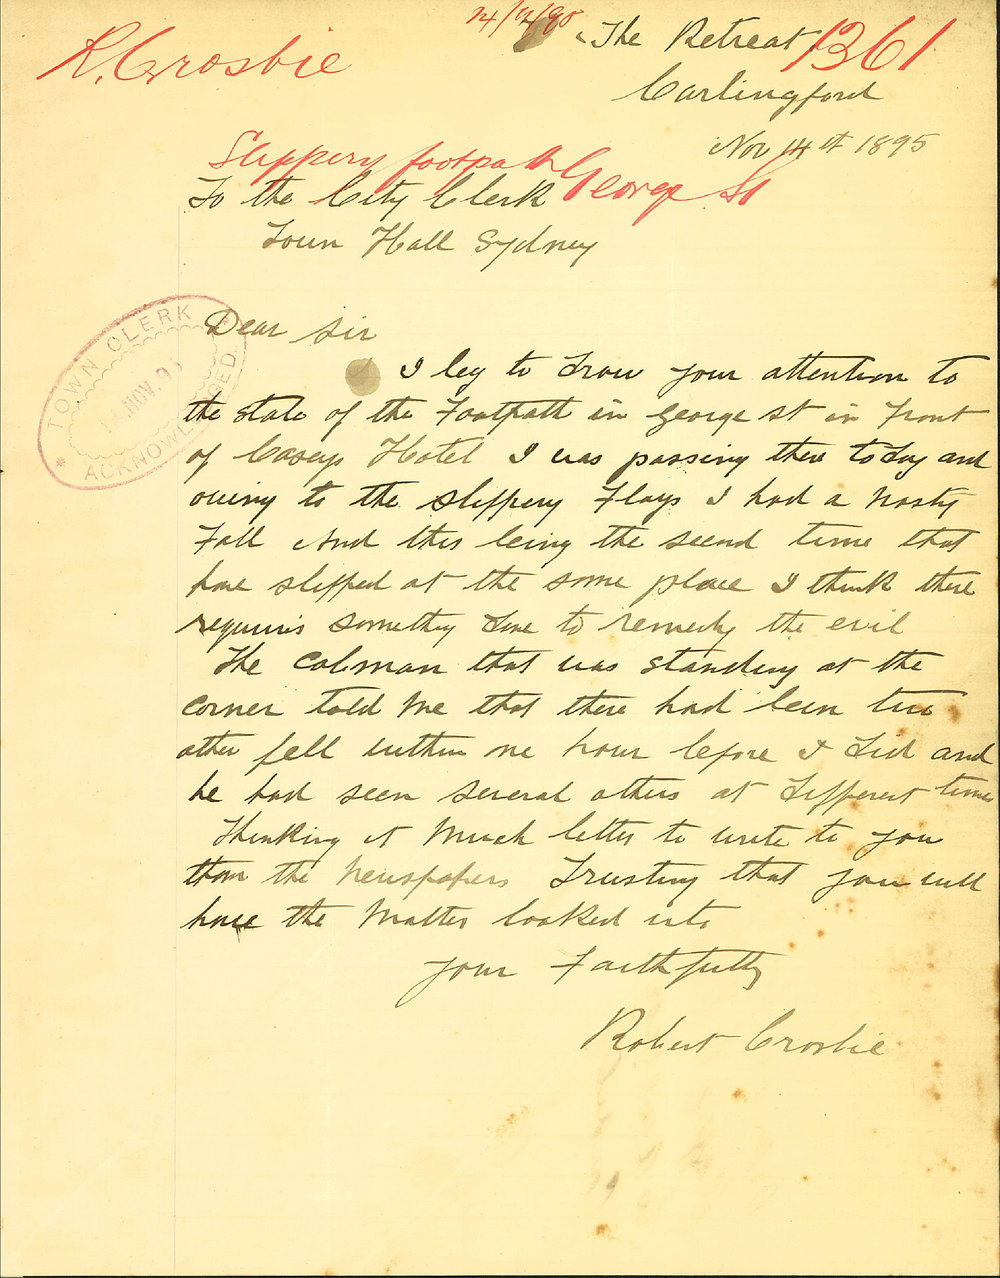 R. Crosbie
The Retreat
1361
Carlingford
Nov 14th 1895
Slippery footpath George St
To the City Clerk
Town Hall Sydney
TOWN CLERK
NOV. 95
ACKNOWLEDGED.
Dear Sir
I beg to Draw your attention to
the state of the Footpath in George St in Front
of Caseys Hotel I was passing there to Day and
owing to the slippery Flags I had a nasty
Fall And this being the second time that
have slipped at the same place I think there
requires something Done to remedy the evil
The Cabman that was standing at the
corner told Me that there had been two
other fell within one hour before I Did and
he had seen several others at Different times
Thinking it Much better to write to you
than the Newspapers Trusting that you will
have the Matter looked into
your Faithfully
Robert Crosbie